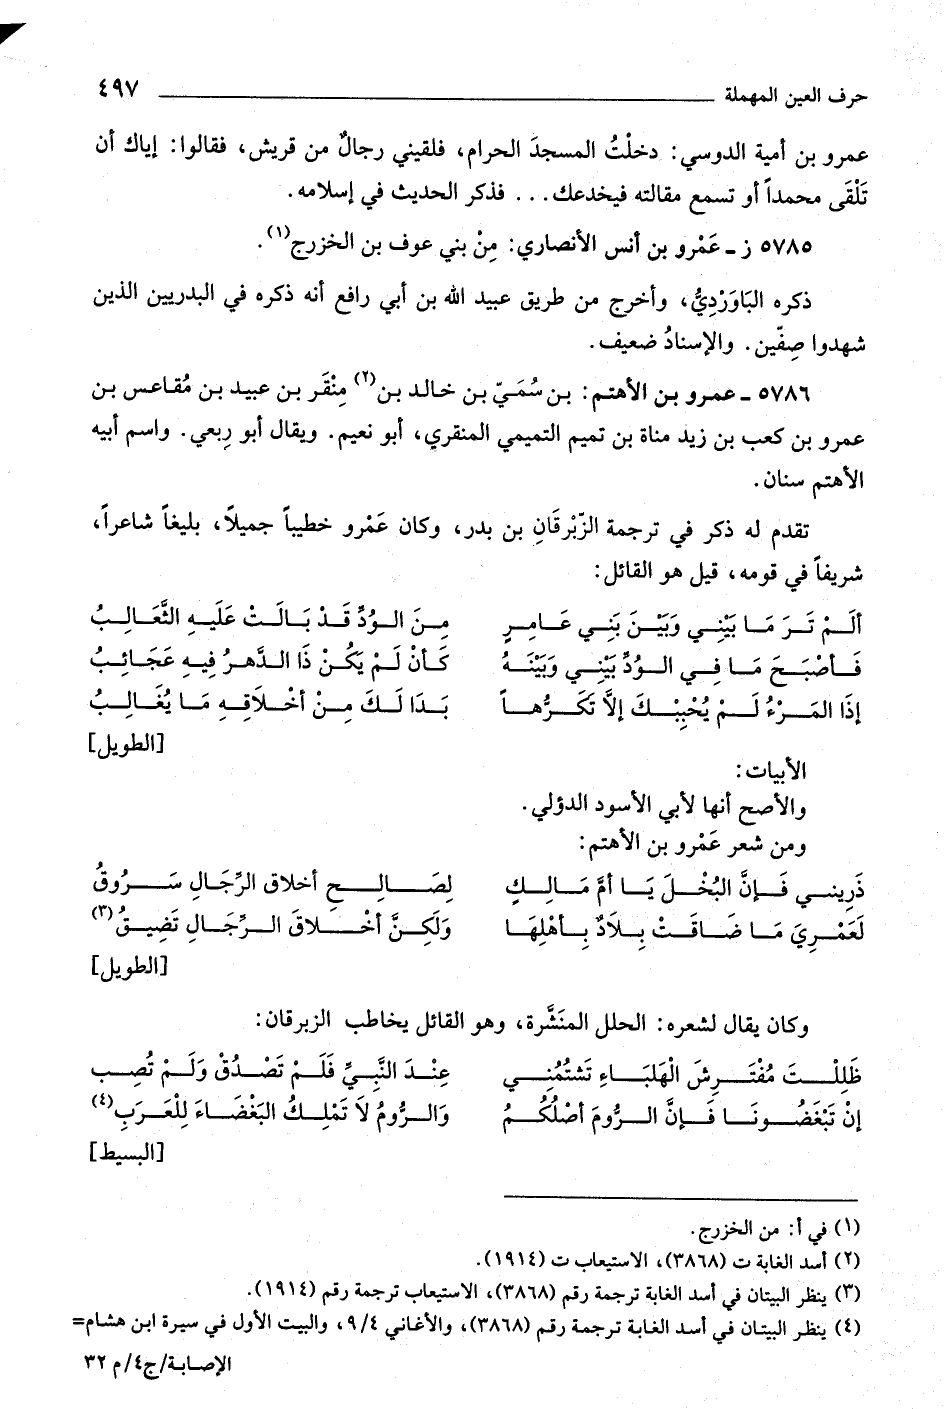 حرف العين المهملة ٤٩٧
عمرو بن أمية الدوسي: دخلْتُ المسجدَ الحرام، فلقيني رجالٌ من قريش، فقالوا: إياك أن
تَلْقَى محمداً أو تسمع مقالته فيخدعك... فذكر الحديث في إسلامه.
٥٧٨٥ ز ـ عَمْرو بن أنس الأنصاري: مِنْ بني عوف بن الخزرج(١).
ذكره البَاوَرْدِيُّ، وأخرج من طريق عبيد الله بن أبي رافع أنه ذكره في البدريين الذين
شهدوا صِفّين. والإسنادُ ضعيف.
٥٧٨٦ ـ عمرو بن الأهتم: بن سُمَيّ بن خالد بن(٢) مِنْقَر بن عبيد بن مُقاعس بن
عمرو بن كعب بن زيد مناة بن تميم التميمي المنقري، أبو نعيم. ويقال أبو رِبعي. واسم أبيه
الأهتم سنان.
تقدم له ذكر في ترجمة الزِّبْرقَانِ بن بدر، وكان عَمْرو خطيباً جميلاً، بليغاً شاعراً،
شريفاً في قومه، قيل هو القائل:
ألَمْ تَرَ مَا بَيْنِي وَبَيْنَ بَنِي عَامِرٍ مِنَ الوُدِّ قَدْ بَالَتْ عَلَيهِ الثَّعَالِبُ
فَأصْبَحَ مَا فِي الوُدِّ بَيْنِي وَبَيْنَهُ كَأنْ لَمْ يَكُنْ ذَا الدَّهرُ فِيهِ عَجَائِبُ
إذَا المَرْءُ لَمْ يُحْبِبْكَ إلاَّ تَكَرُّهاً بَدَا لَكَ مِنْ أخْلاَقِهِ مَا يُغَالِبُ
[الطويل]
الأبيات:
والأصح أنها لأبي الأسود الدؤلي.
ومن شعر عَمْرو بن الأهتم:
ذَرِينِي فَإنَّ البُخْلَ يَا أمَّ مَالِكٍ لِصَالِحِ أخلاق الرِّجَالِ سَرُوقُ
لَعَمْرِيَ مَا ضَاقَتْ بِلاَدٌ بِأهْلِهَا وَلَكِنَّ أخْلاَقَ الرِّجَالِ تَضِيقُ(٣)
[الطويل]
وكان يقال لشعره: الحلل المنَشَّرة، وهو القائل يخاطب الزبرقان:
ظَلِلْتَ مُفْتَرِشَ الْهَلبَاءِ تَشتُمُنِي عِنْدَ النَّبِيِّ فَلَمْ تَصْدُقْ وَلَمْ تُصِب
إنْ تَبْغَضُونَا فَإنَّ الرُّومَ أصْلُكُمُ وَالرُّومُ لاَ تَمْلِكُ البَغْضَاءَ لِلْعَرَبِ(٤)
[البسيط]
(١) في أ: من الخزرج.
(٢) أسد الغابة ت (٣٨٦٨)، الاستيعاب ت (١٩١٤).
(٣) ينظر البيتان في أسد الغابة ترجمة رقم (٣٨٦٨)، الاستيعاب ترجمة رقم (١٩١٤).
(٤) ينظر البيتان في أسد الغابة ترجمة رقم (٣٨٦٨)، والأغاني ٩/٤، والبيت الأول في سيرة ابن هشام=
الإصابة/ج٤/م ٣٢